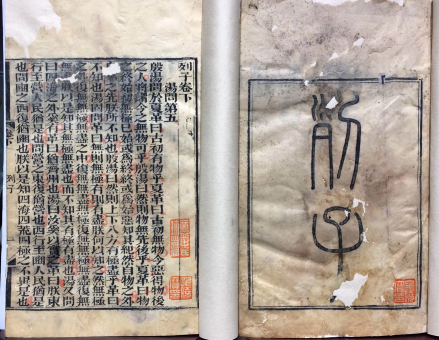 列子
列子卷下
湯問第五
殷湯問於夏革曰古初有物乎夏革曰古初無物今惡得物後
之人將謂今之無物可乎殷湯曰然則物無先後乎夏革曰物
之終始初無極已始或為終終或為始惡知其紀然自物之外
自事之先朕所不知也殷湯曰然則上下八方有極盡乎革曰
不知也湯固問革曰無則無極有則有盡朕何以知之然無極
之外復無無極無盡之中復無無盡無極復無無極無盡復無
無盡朕以是知其無極無盡也而不知其有極有盡也湯又問
曰四海之外奚有革曰猶齊州也湯曰汝奚以實之革曰朕東
行至營人民猶是也問營之東復猶營也西行至豳人民猶是
也問豳之西復猶豳也朕以是知四海四荒四極之不異是也